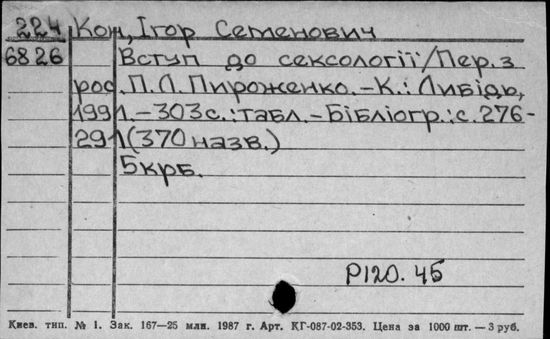 224 Кон, Ігор Семенович
6826 Вступ до сексології/Пер. з
рос. П.Л. Пироженко.-К.: Либідь,
1991.-303с.:табл.-Бібліогр.:с.276-
291(370 назв.)
5крб.
Р120.45
Киев. тип. № 1. Зак. 167—25 млн. 1987 г. Арт. КГ-087-02-353. Цена за 1000 шт. — 3 руб.